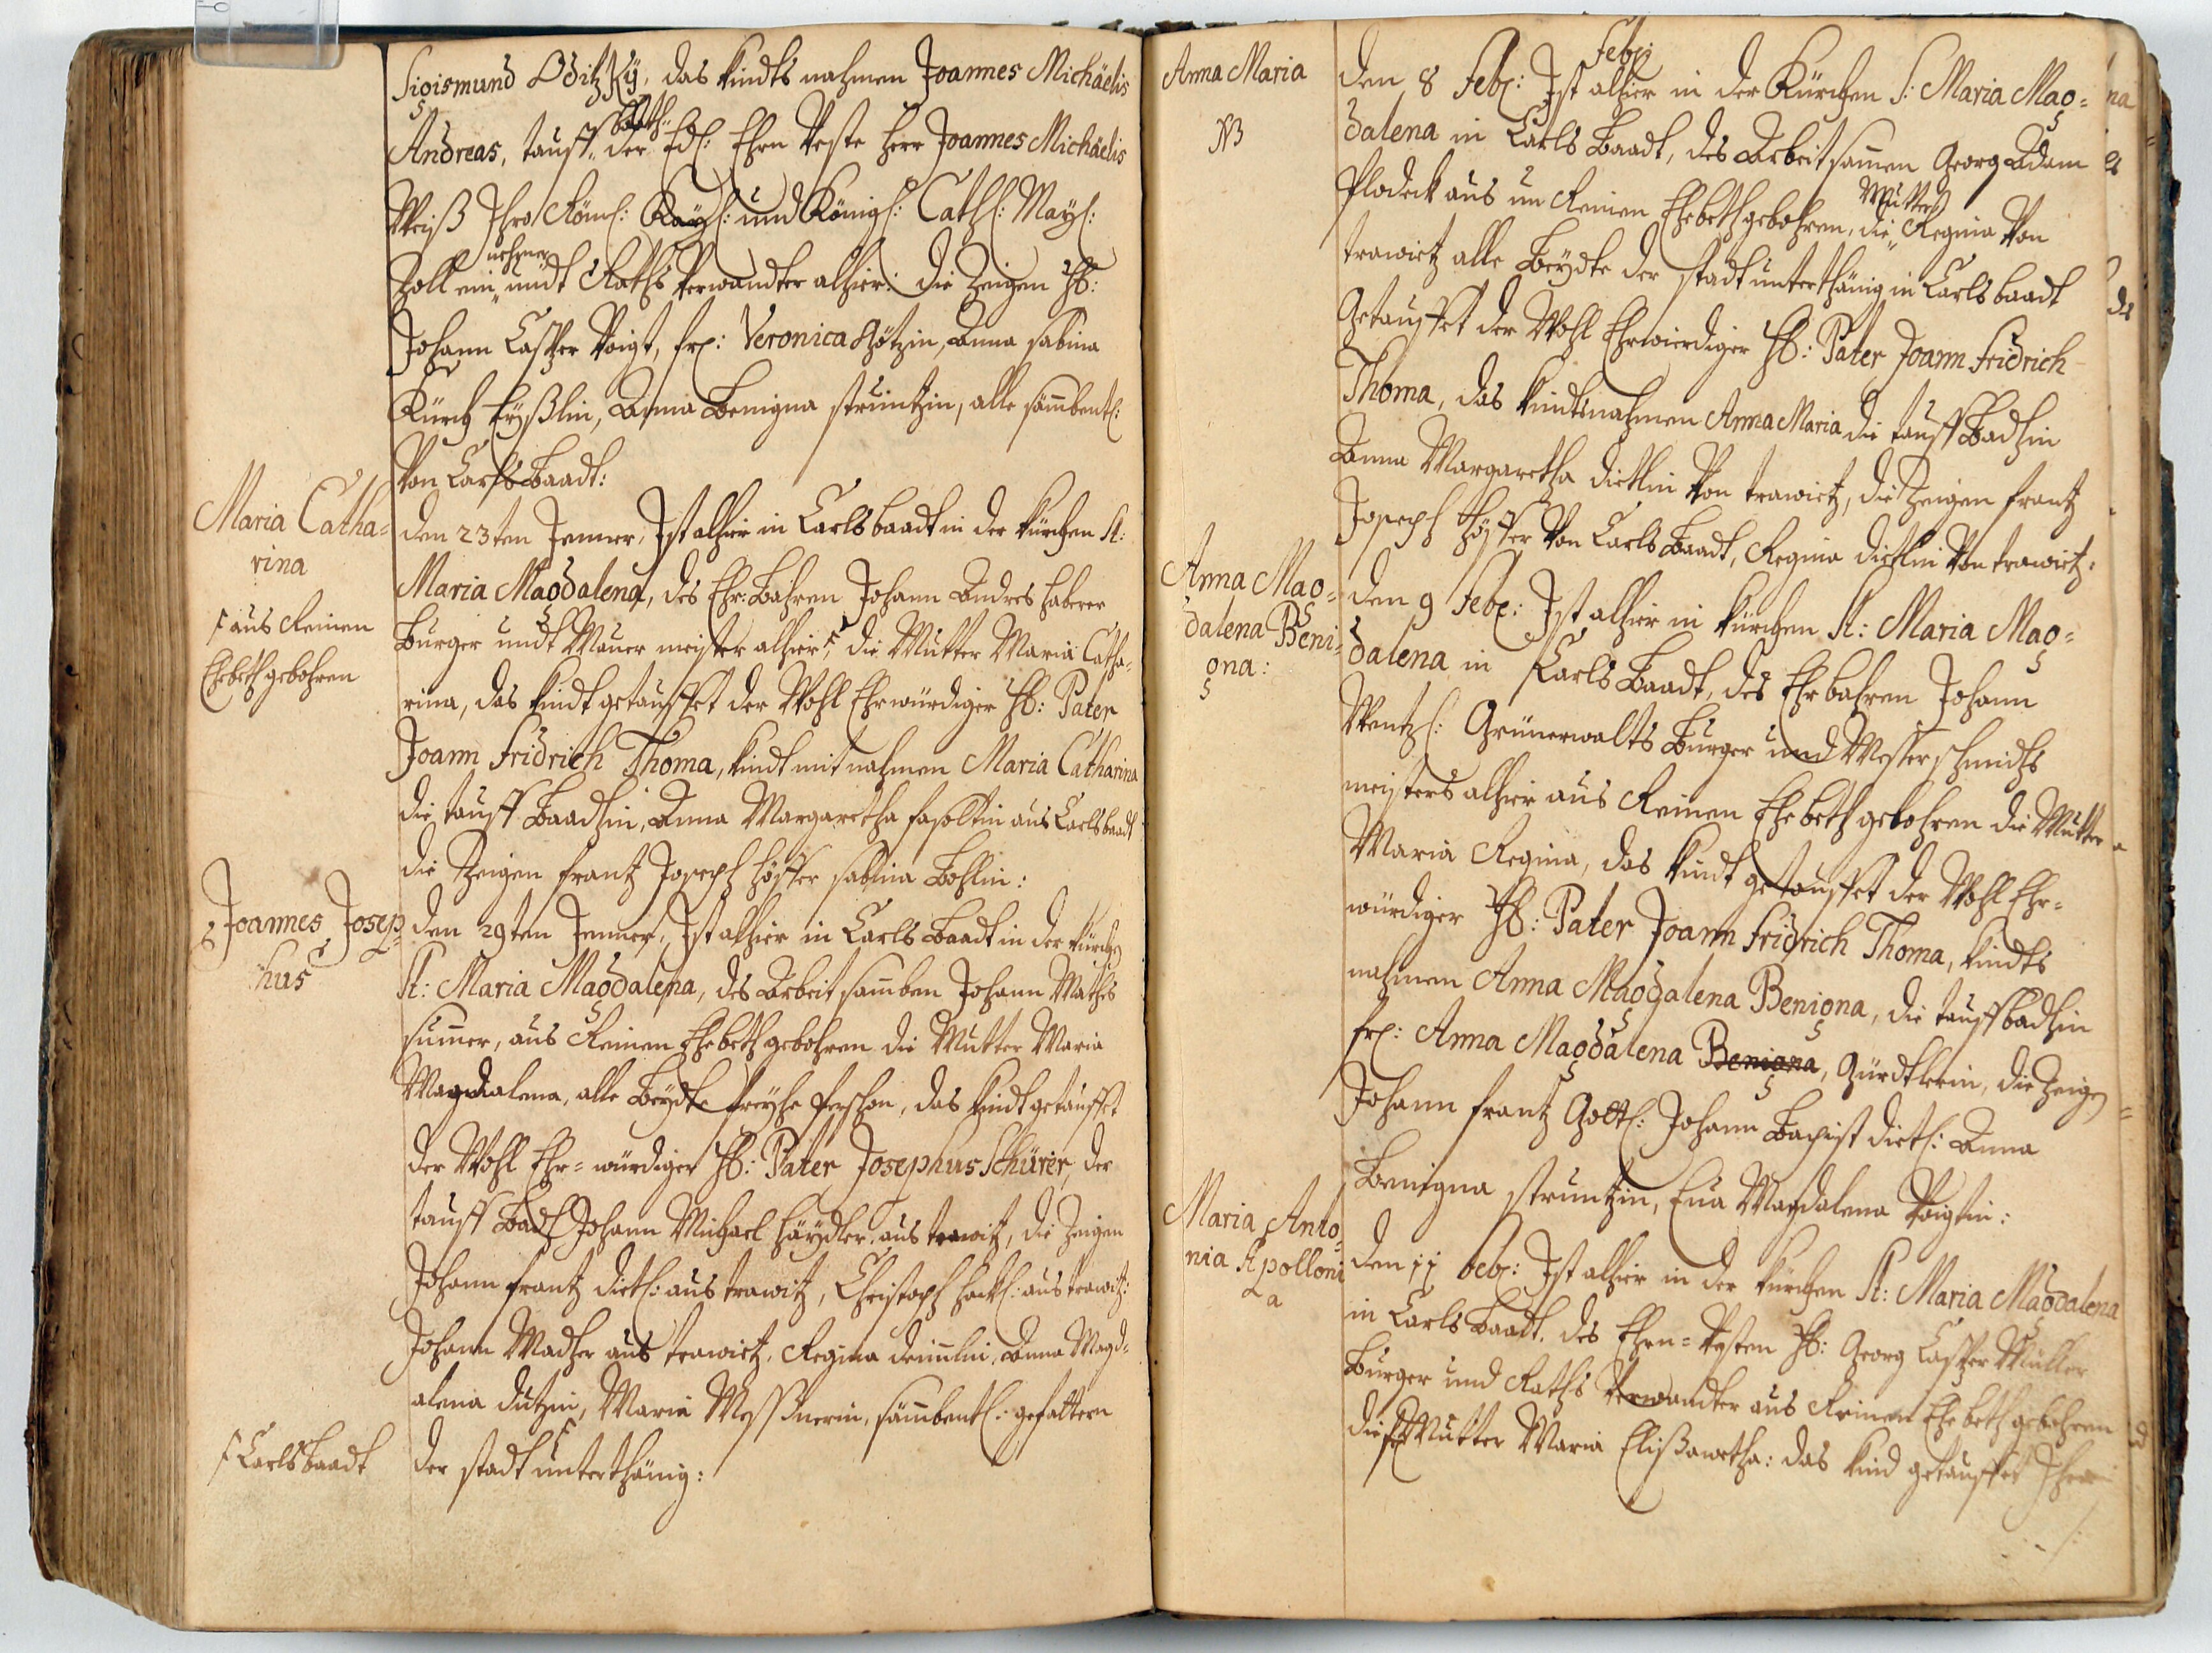 Sigismund Oditzky, das Kindts nahmen Joannes Michäelis
Andreas, tauff Path: der Edl: Ehrn Veste Herr Joannes Michäelis
Weiß Ihro Röml: Kayl: und Königl: Cathl: Mayl:
Zoll ein nehmer undt Raths Verwandter alhier: die Zeigen Hl:
Johann Casper Voigt, frl: Veronica Götzin, Anna Sabina
Anna Benigna Struntzin, alle sämbentl:
Von Carlsbaadt:
Maria Catha=
rina
den 23ten Jenner, Ist alhier in Carlsbaadt in der Kürchen St:
Maria Magdalena, des Ehr: Bahren Johann Andres Haberer
Burger undt Maurer meister alhier, die Mutter Maria Catha=
aus Reinen
Ehebeth gebohren
rina, das Kindt getauffet der Wohl Ehrwürdiger Hl: Pater
Joann Fridrich Thoma, Kindt mit nahmen Maria Catharina
die tauff Baadhin, Anna Margaretha Fasoltin aus Carlsbaadt
die Zeigen Frantz Joseph Höffer Sabina Bohlin:
Joannes Josep=
hus
den 29ten Jenner, Ist alhier in Carls Baadt in der Kürchen
St: Maria Magdalena, des Arbeit samben Johann Mathes
Summer, aus Reinen Ehebeth gebohren die Mutter Maria
Magdalena, alle Beydte freyhe Persohn, das Kindt getauffet
der Wohl Ehr= würdiger Hl: Pater Josephus Schürer, der
tauff Badh Johann Michael Häydler aus trawitz, die Zeigen
Johann Frantz Dietl: aus trawitz, Christoph Hackl: aus trawitz:
Johann Madher aus trawietz, Regina Demmlin, Anna Magd=
alena Dutzin, Maria Messnerin, sämbentl: gefattern
Carlsbaadt
der Stadt unterthänig:
Anna Maria
NB
Feb:
den 8 Feb: Ist alhier in der Kürchen S: Maria Mag=
dalena in Carls Baadt, des Arbeitsamen Georg Adam
Plodeck aus un Reinen Ehebeth gebohren, die Mutter Regina Von
trawietz alle Beydte der Stadt unterthänig in Carlsbaadt
Getauffet der Wohl Ehrwierdiger Hl: Pater Joann Fridrich
Thoma, das Kindtsnahmen Anna Maria die tauff Badhin
Anna Margaretha Dietlin Von trawietz, die Zeigen Frantz
Joseph Höffer Von Carls Baadt, Regina Dietlin Von trawietz:
Anna Mag=
dalena Beni=
gna:
den 9 Feb: Ist alhier in Kürchen St: Maria Mag=
dalena in Carls Baadt, des Ehrbahren Johann
Wentzl: Grünerwalts Burger und Messerschmidts
meisters alhier aus Reinen Ehebeth gebohren die Mutter
Maria Regina, das Kindt getauffet der Wohl Ehr=
würdiger Hl: Pater Joann Fridrich Thoma, Kindts
nahmen Anna Magdalena Benigna, die tauffbadhin
frl: Anna Magdalena Benigna, Gürdtlerin, die Zeigen
Johann Frantz Gottl: Johann Baptist Dietl: Anna
Benigna Struntzin, Eua Magdalena Voigtin:
Maria Anto=
nia Apolloni
a
den 11 feb: Ist alhier in der Kürchen St: Maria Magdalena
in Carls Baadt, des Ehrn= Vesten Hl: Georg Casper Müller
Burger und Raths Verwandter aus Reinen Ehebeth gebohren
die Mutter Maria Elißawetha: das Kind getauffet Ihro